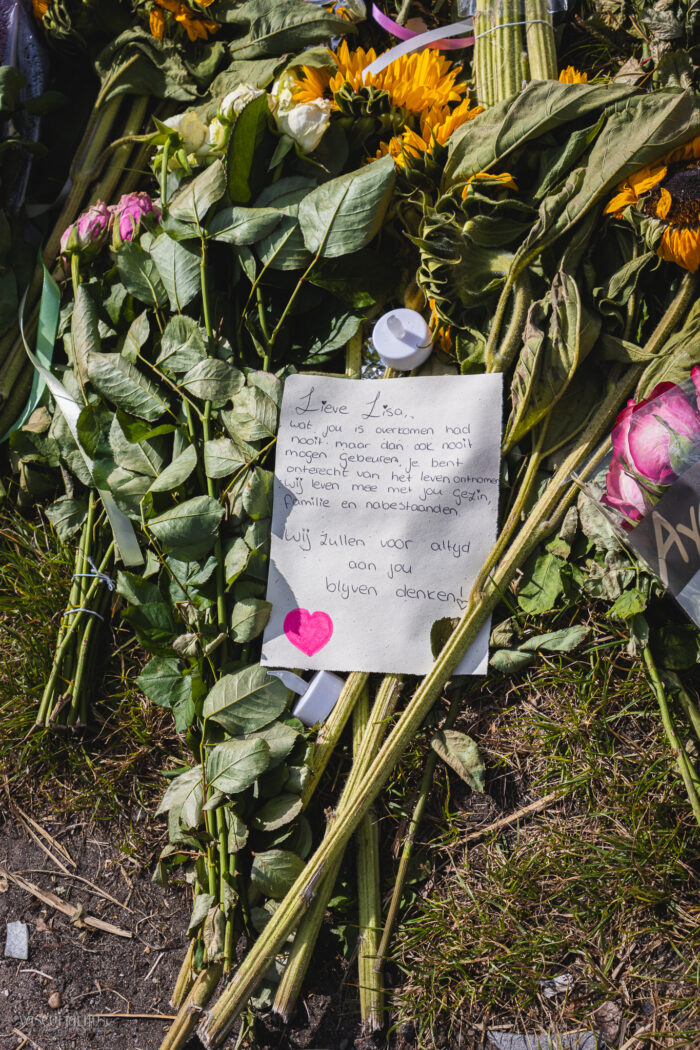 Lieve Lisa,
wat jou is overkomen had
nooit, maar dan ook nooit
mogen gebeuren. Je bent
onterecht van het leven ontnomen
wij leven mee met jou gezin,
familie en nabestaanden.
Wij zullen voor altyd
aan jou
blyven denken!
Ay